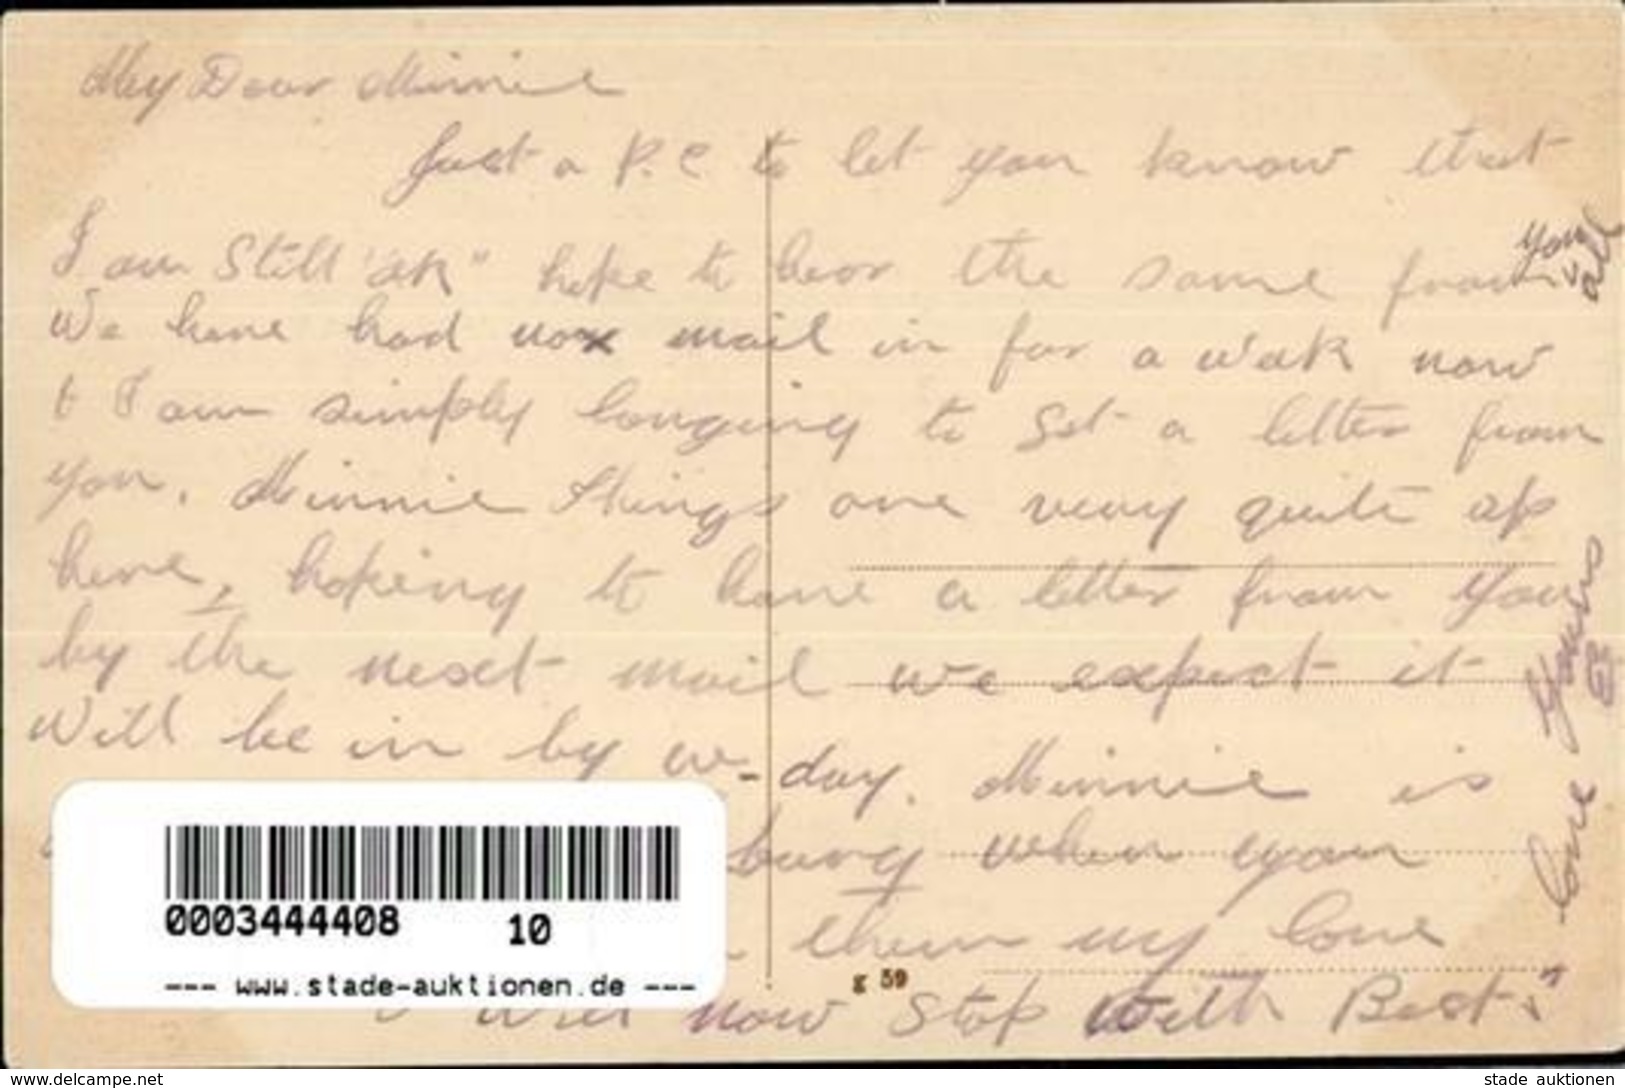 My Dear Minnie
Just a P.C to let you know that
I am Still "ok" hope to hear the same from you all
We have had no mail in for a week now
& I am simply longing to get a letter from
you. Minnie things are very quite up
here, hoping to have a letter from you
by the next mail we expect it
Will be in by w-day. Minnie is
when you
them my love
I will now Stop with Best
love Yours
0003444408 10
--- www.stade-auktionen.de ---
g 59
www.delcampe.net
stade auktionen